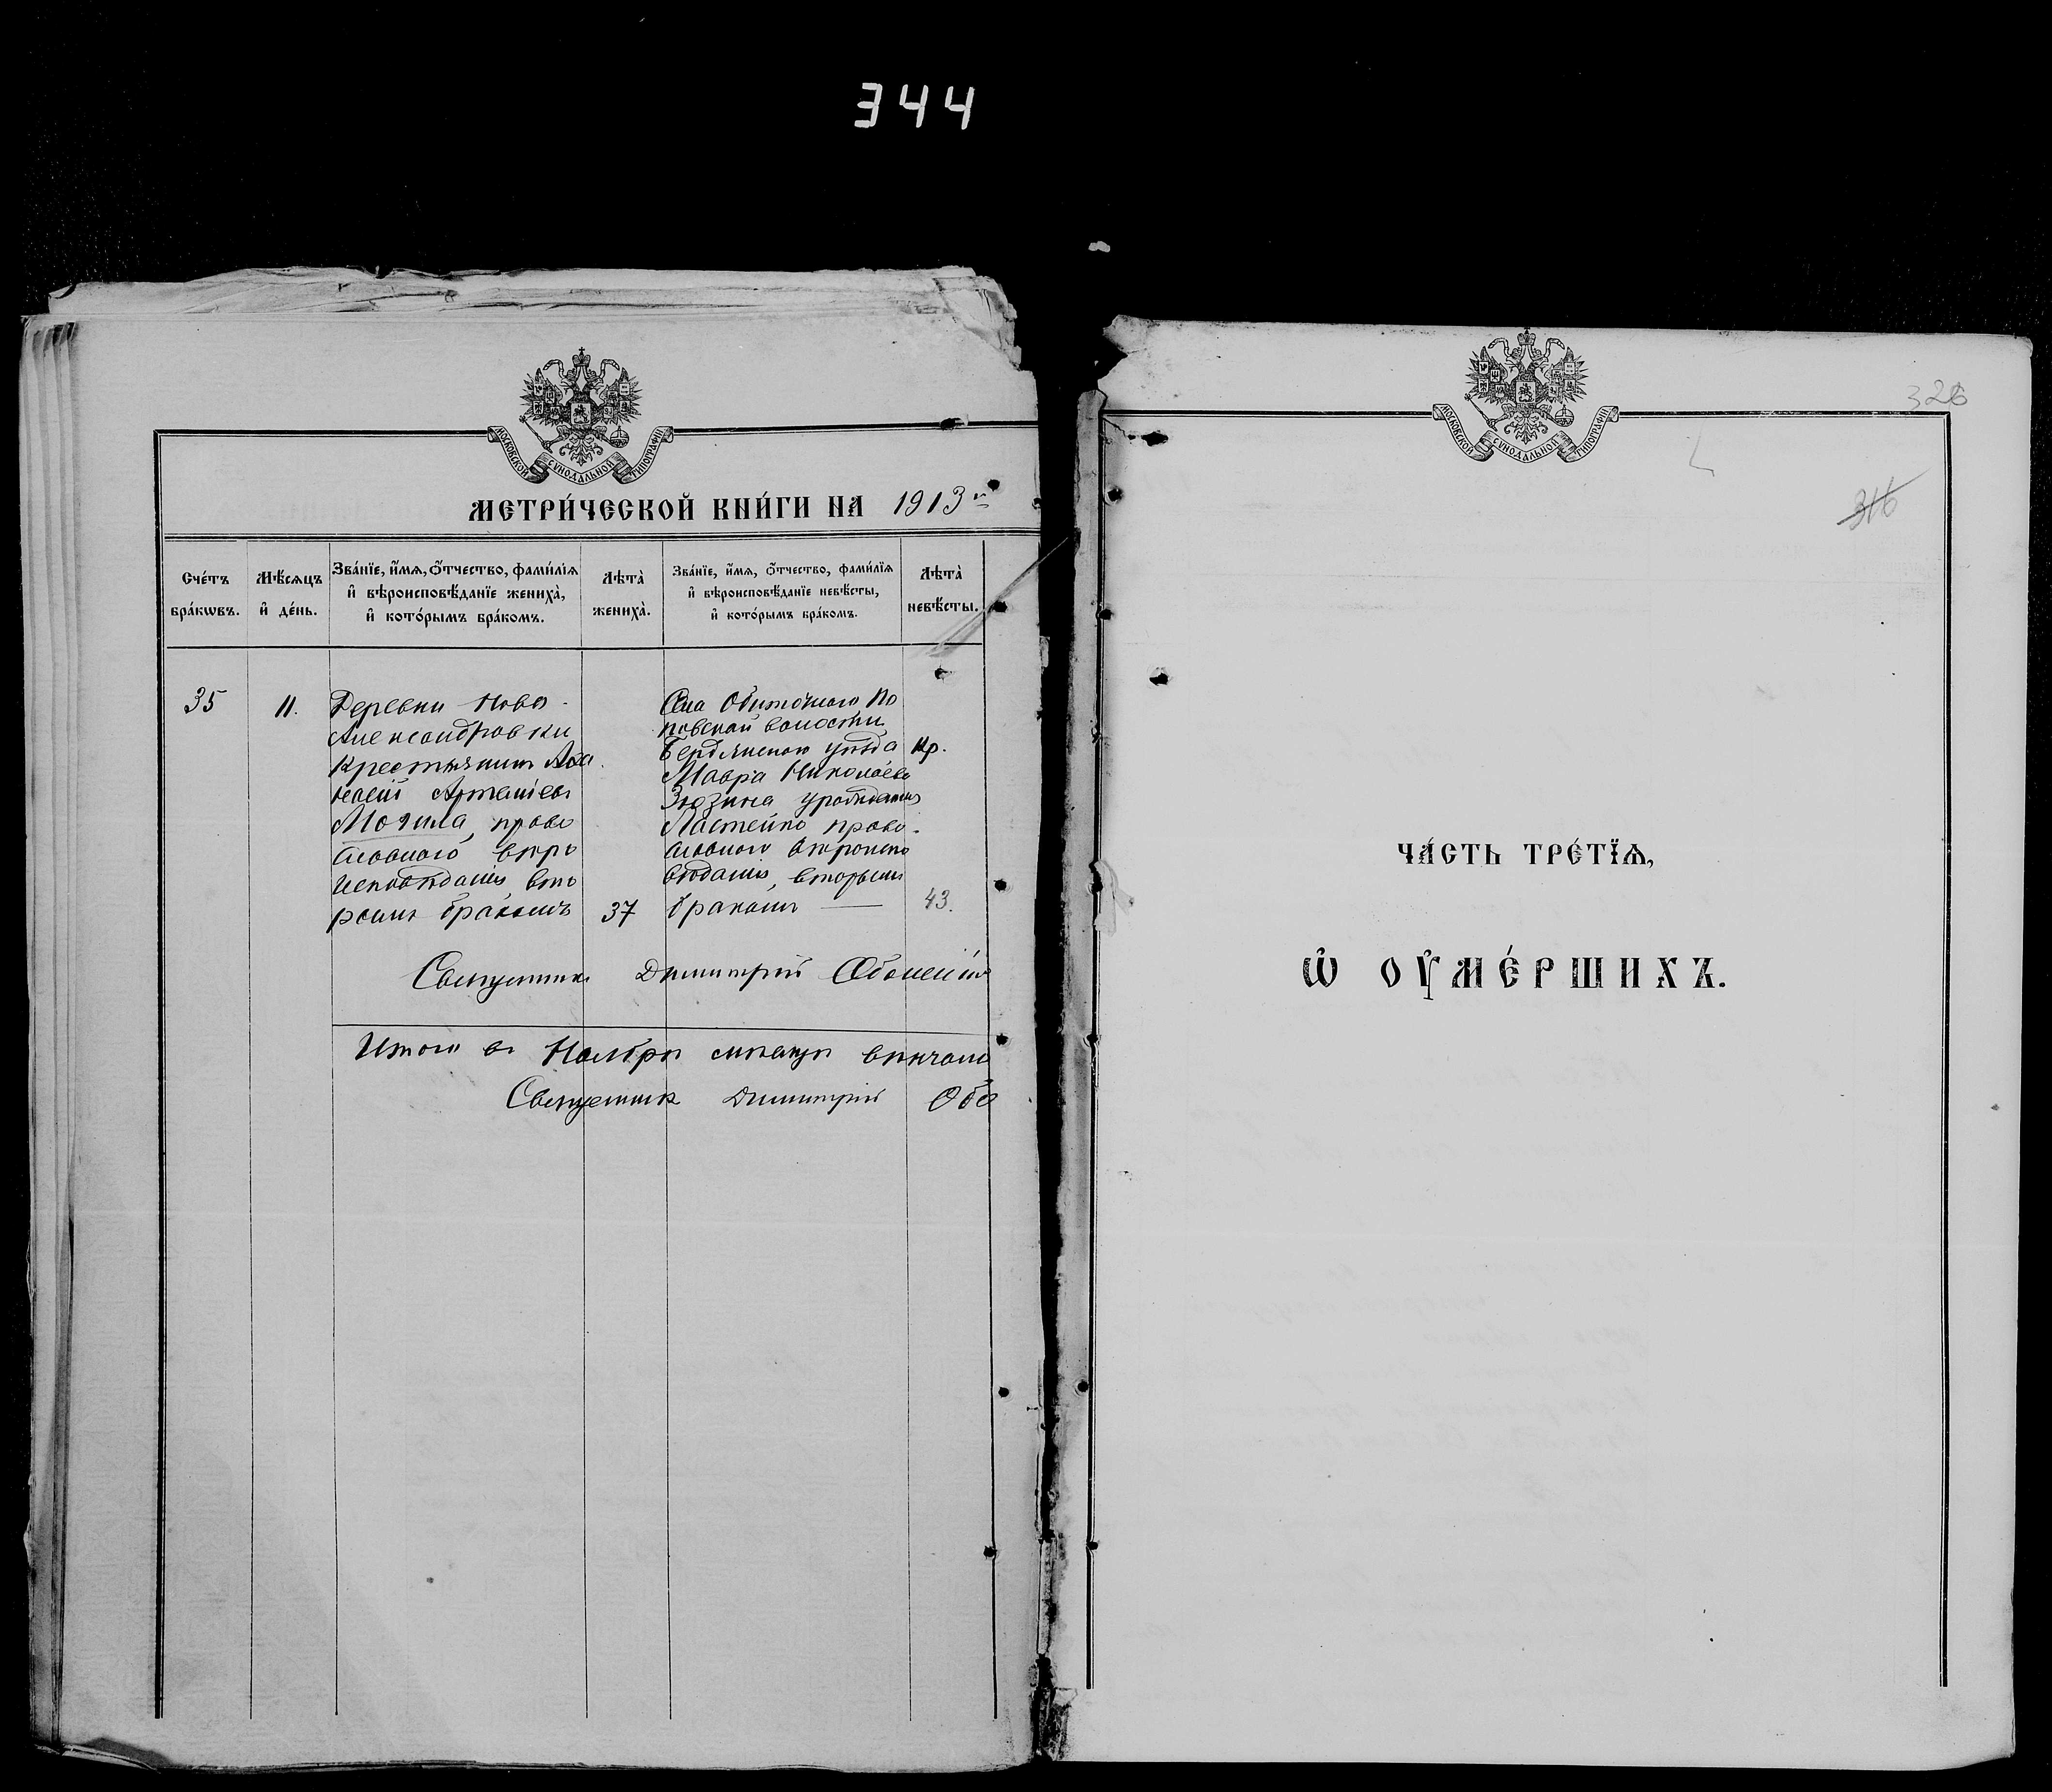 344
МОСКОВСКОЙ СУНОДАЛЬНОЙ ТИПОГРАФІИ
МЕТРИ́ЧЕСКОЙ КНИ́ГИ НА 1913 г
Сче́тъ бра́кωвъ.
Мѣ́сѧцъ и҆ де́нь.
Зва́нїе, и҆́мѧ, ѻ҆́тчество, фами́лїѧ
и҆ вѣроисповѣ́данїе жениха̀,
и҆ кото́рымъ бра́комъ.
Лѣта̀ жениха̀.
Зва́нїе, и҆́мѧ, ѻ҆́тчество, фами́лїѧ
и҆ вѣроисповѣ́данїе невѣ́сты,
и҆ кото́рымъ бра́комъ.
Лѣта̀ невѣ́сты.
35
11.
Деревни Ново-
Александровки
крестьянинъ
Могила, право
славного вѣро
исповѣданія, вто
рымъ бракомъ
37
Села
волости
Бердянского уѣзда кр.
Мавра Николаева
Зюзина
право-
славного вѣроиспо
вѣданія, вторымъ
бракомъ —
43.
Священникъ Димитрій
Итого въ Ноябрѣ мѣсяцѣ вѣнчано
Священникъ Димитрій Обо
МОСКОВСКОЙ СУНОДАЛЬНОЙ ТИПОГРАФІИ
326
316
ЧА́СТЬ ТРЕ́ТЇѦ,
Ѽ ОУ҆МЕ́РШИХЪ.